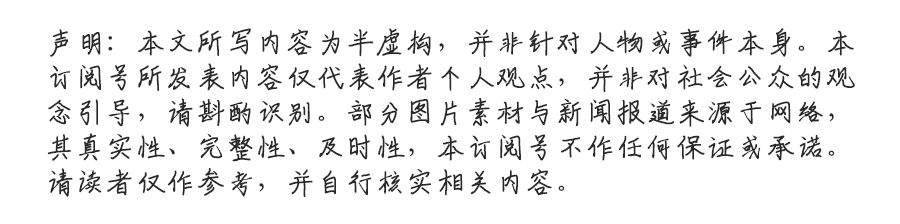 声明：本文所写内容为半虚构，并非针对人物或事件本身。本
订阅号所发表内容仅代表作者个人观点，并非对社会公众的观
念引导，请斟酌识别。部分图片素材与新闻报道来源于网络，
其真实性、完整性、及时性，本订阅号不作任何保证或承诺。
请读者仅作参考，并自行核实相关内容。